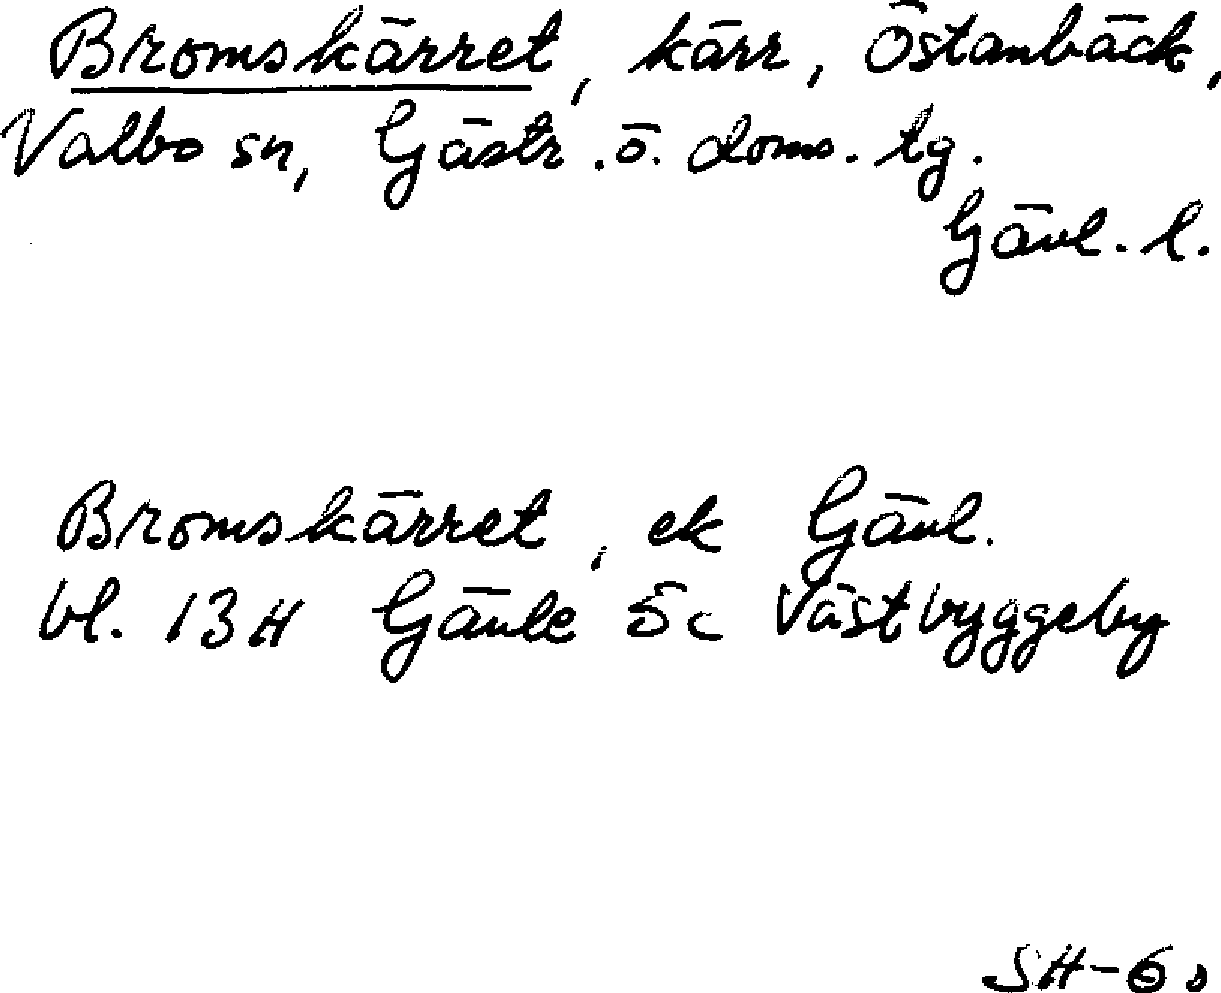 Bromskärret, kärr, Östanbäck,
Valbo sn, Gästr. ö. doms. tg.
Gävl. l.
Bromskärret, ek Gävl.
bl. 13H Gävle 5c Västbyggeby